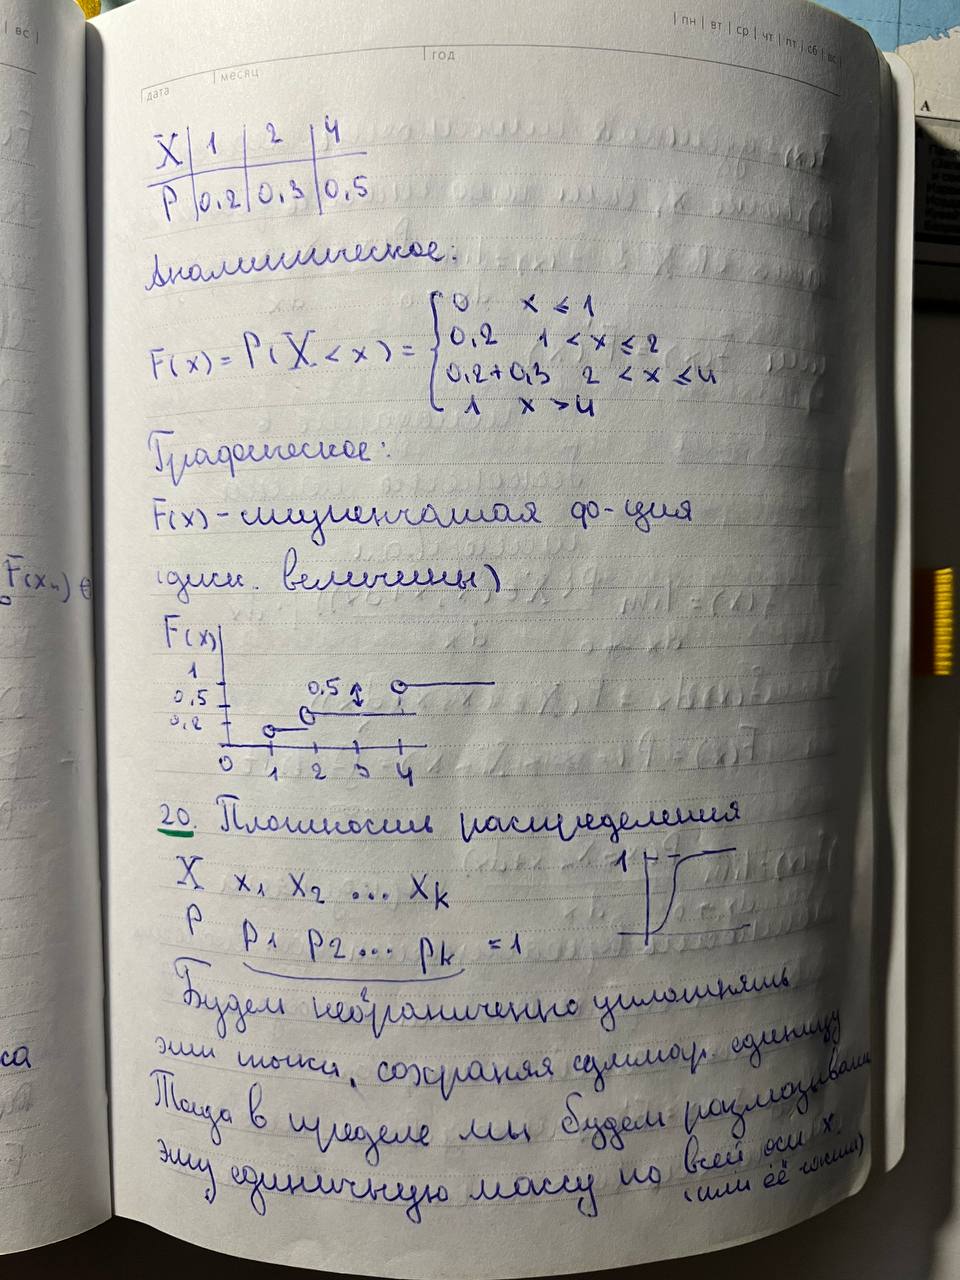 ВС
ПН ВТ СР ЧТ ПТ СБ ВС
дата месяц год
X 1 2 4
P 0,2 0,3 0,5
Аналитическое:
0 x ≤ 1
0,2 1 < x ≤ 2
F(x) = P(X < x) =
0,2+0,3 2 < x ≤ 4
1 x > 4
Графическое:
F(x) - ступенчатая ф-ция
(диск. величины)
F(x)
1
0,5
0,5
0,2
0 1 2 3 4
20. Плотность распределения
1
X x1 x2 ... xk
P p1 p2 ... pk = 1
Будем неограниченно уплотнять
эти точки, сохраняя суммар. единицу
Тогда в пределе мы будем размазывать
эту единичную массу по всей оси x
(или её части)
F(xn)
са
A